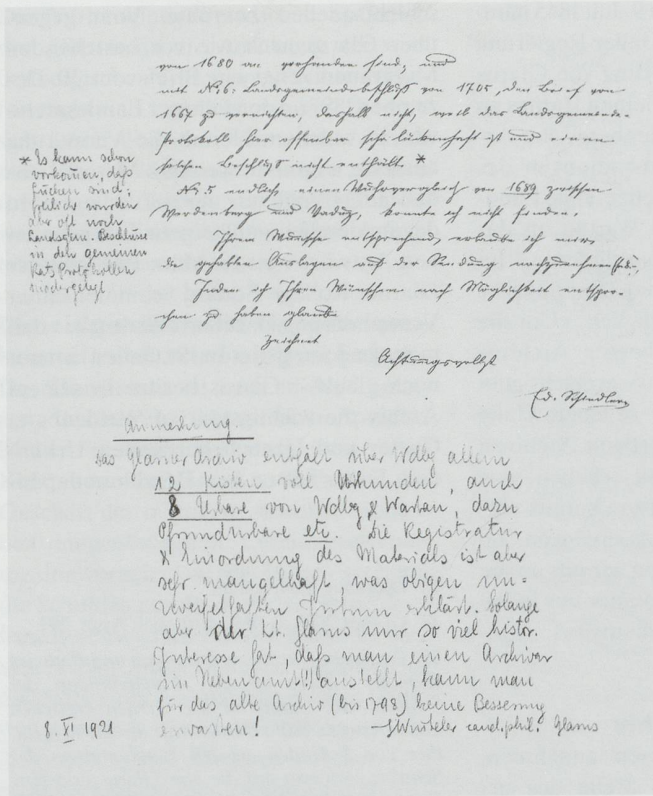 von 1680 an vorhanden sind; und
mit No. 6: Landsgemeindebeschluß von 1705, den Brief von
1667 zu vernichten, deshalb nicht, weil das Landsgemeinde-
Protokoll hier offenbar sehr lückenhaft ist und einen
solchen Beschluß nicht enthält. *
No. 5 endlich einen Wuhrvergleich von 1689 zwischen
Werdenberg und Vaduz, konnte ich nicht finden.
Ihrem Wunsche entsprechend, erlaube ich mir,
die gehabten Auslagen auf der Sendung nachzunehmen
Indem ich Ihren Wünschen nach Möglichkeit entspro-
chen zu haben glaube
zeichnet
Achtungsvollst
Ed. Schindler
* Es kann schon
vorkom̅en, daß
Lücken sind;
freilich wurden
aber oft noch
Landsgem. Beschlüsse
in den gemeinen
Ratsprotokollen
niedergelegt
Anmerkung.
Das Glarner Archiv enthält über Wdbg allein
12 Kisten voll Urkunden, auch
8 Urbare von Wdbg & Wartau, dazu
Pfrundurbare etc. Die Registratur
& Einordnung des Materials ist aber
sehr mangelhaft was obigen un-
zweifelhaften Irrtum erklärt. Solange
aber der Kt. Glarus nur so viel histor.
Interesse hat, daß man einen Archivar
im Nebenamt!! anstellt, kann man
für das alte Archiv (bis 1798) keine Besserung
erwarten!
8. XI 1921
J Winteler cand. phil. Glarus